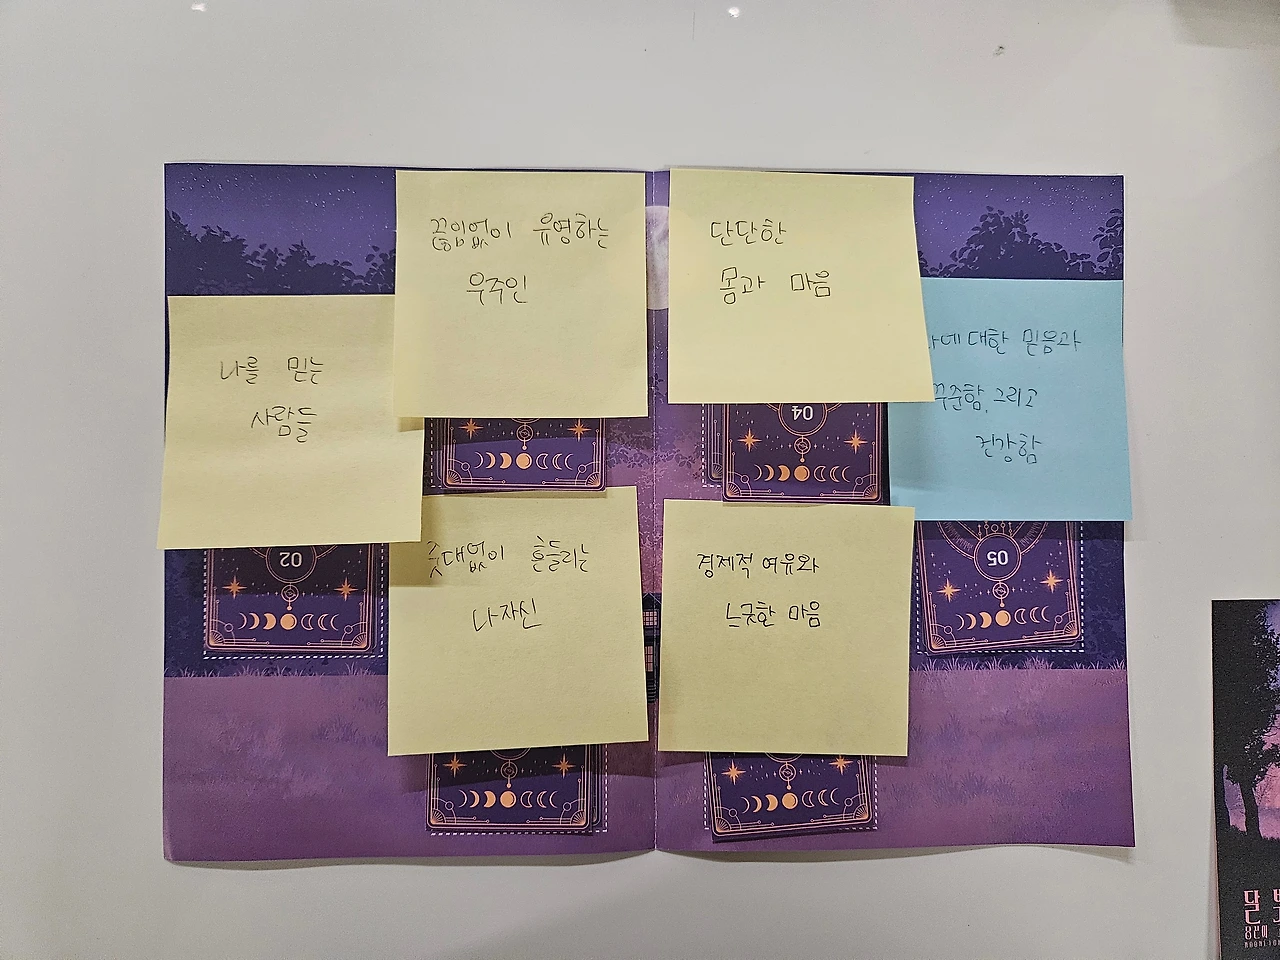 끊임없이 유영하는
우주인
단단한
몸과 마음
나를 믿는
사람들
나에 대한 믿음과
꾸준함, 그리고
건강함
줏대없이 흔들리는
나 자신
경제적 여유와
느긋한 마음
04
02
05
달